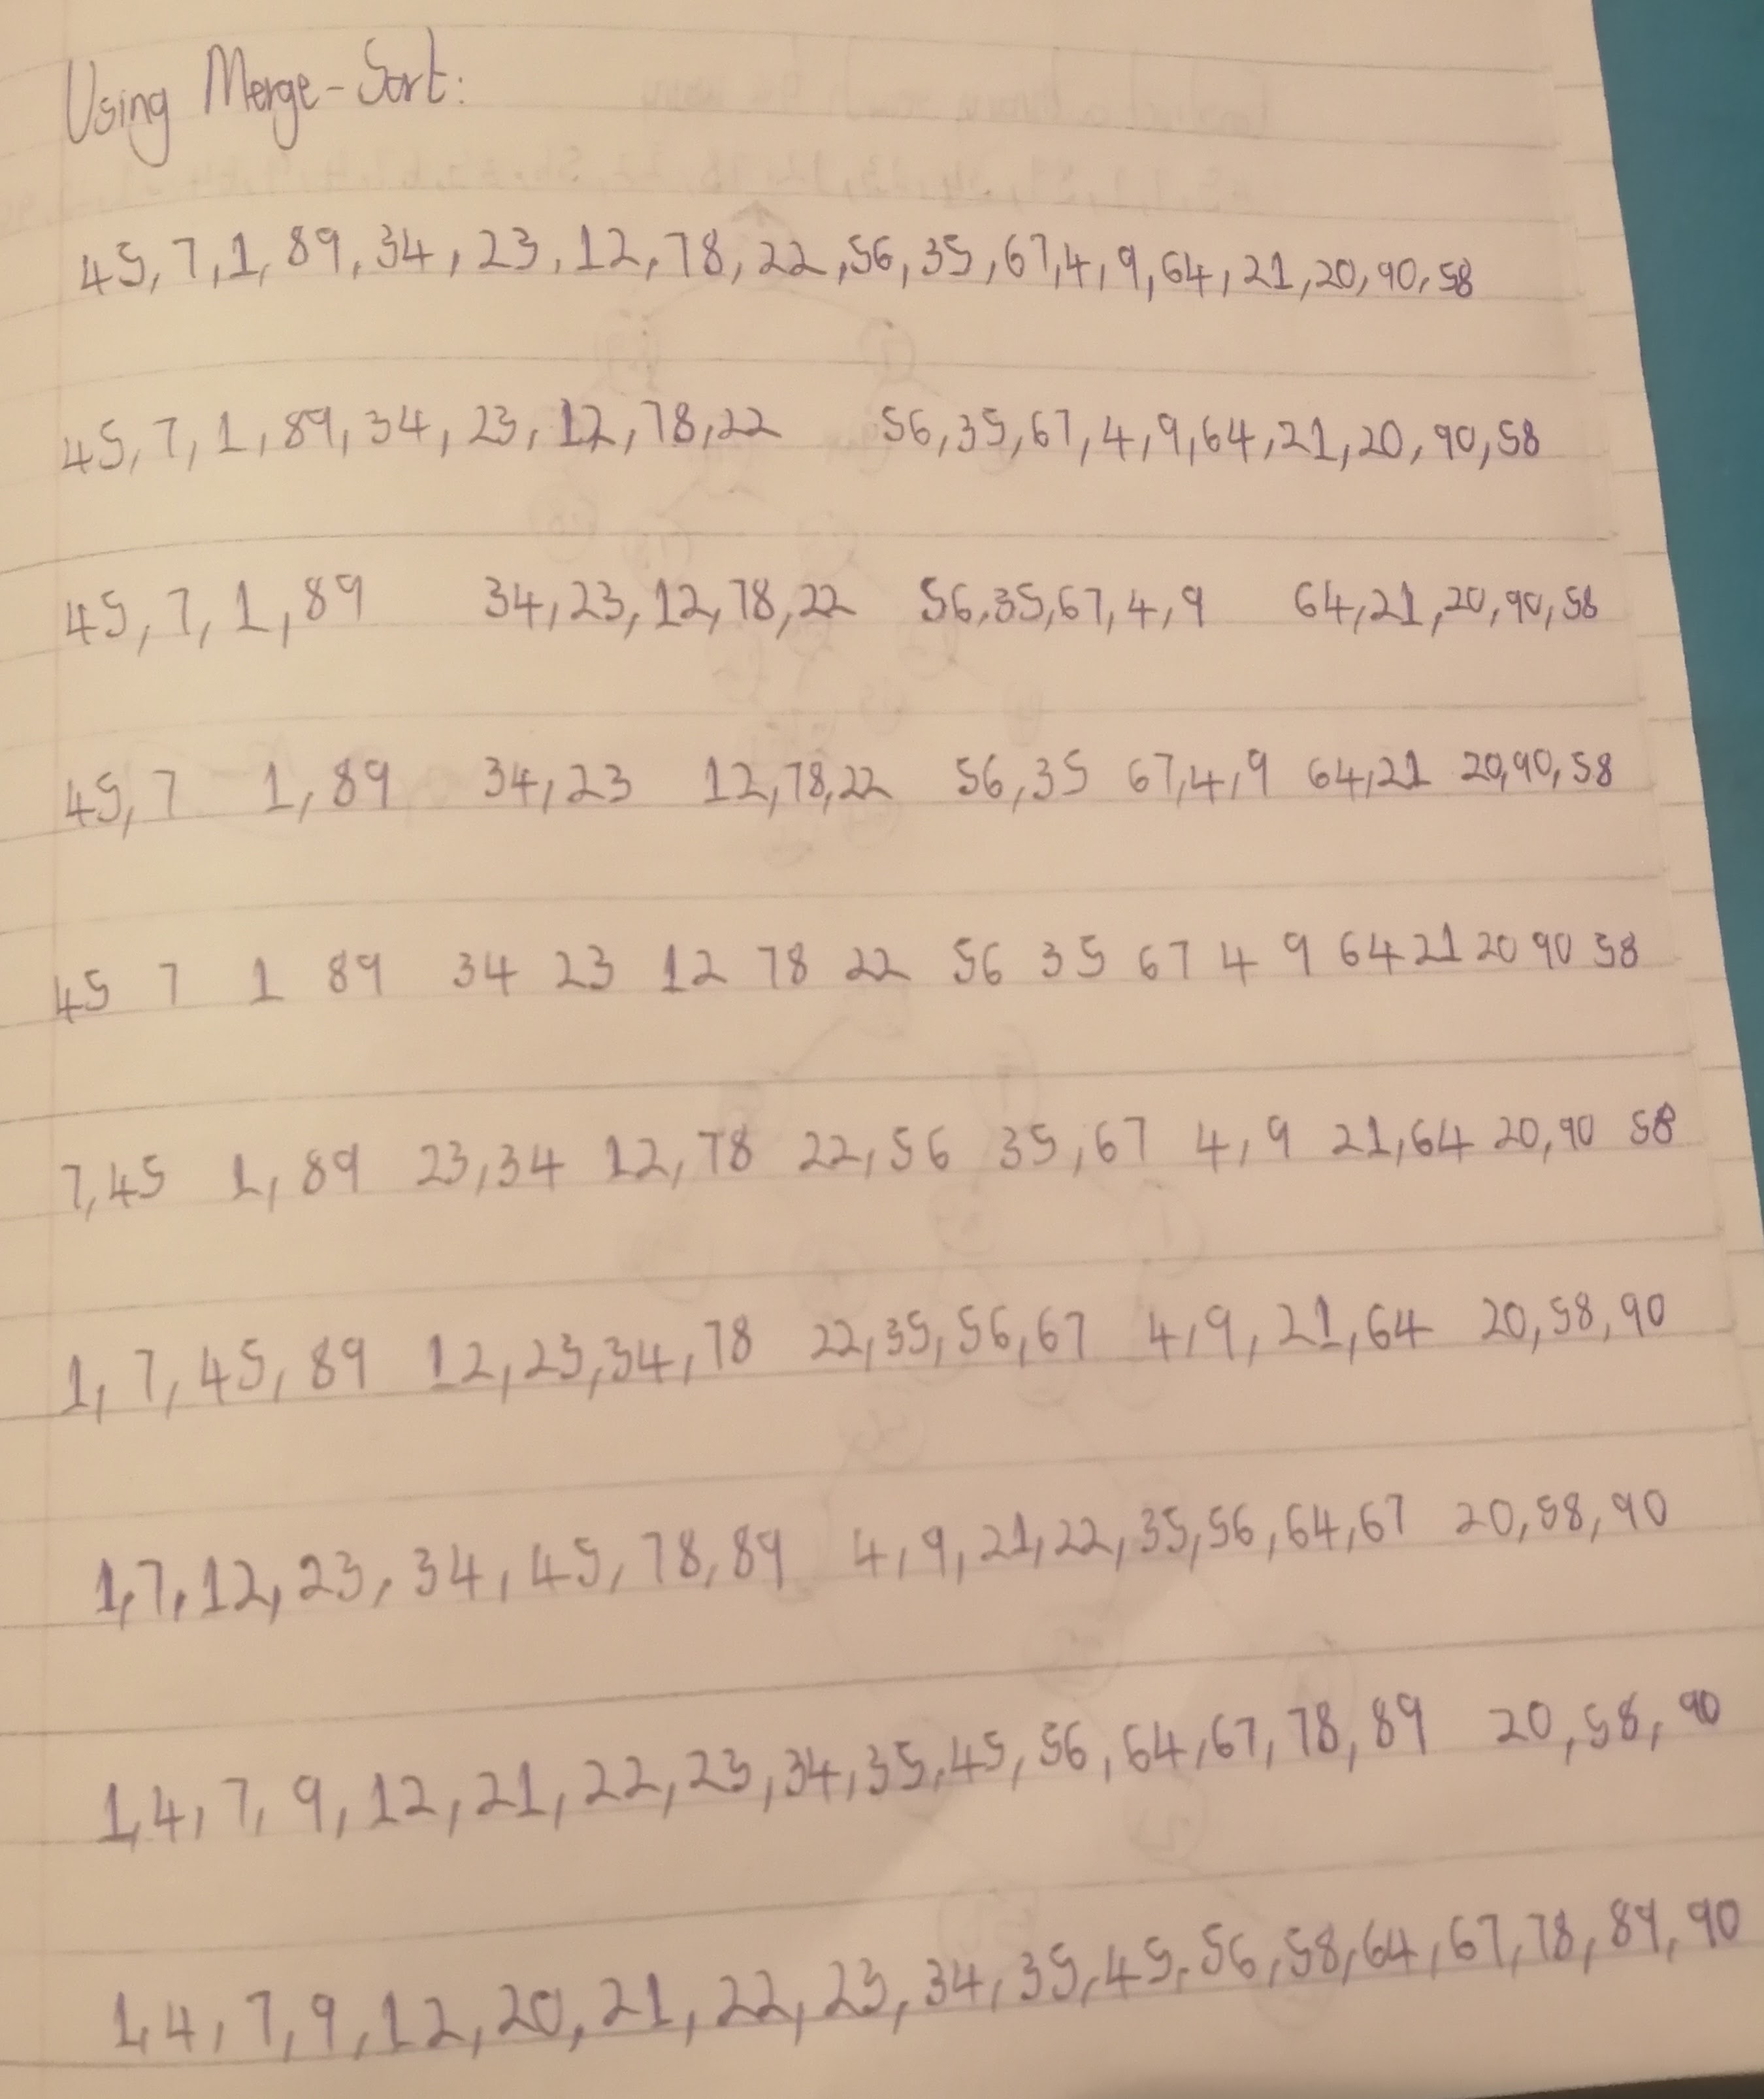 Using Merge-Sort:
45, 7, 1, 89, 34, 23, 12, 78, 22, 56, 35, 67, 4, 9, 64, 21, 20, 90, 58
45, 7, 1, 89, 34, 23, 12, 78, 22 56, 35, 67, 4, 9, 64, 21, 20, 90, 58
45, 7, 1, 89 34, 23, 12, 78, 22 56, 35, 67, 4, 9 64, 21, 20, 90, 58
45, 7 1, 89 34, 23 12, 78, 22 56, 35 67, 4, 9 64, 21 20, 90, 58
45 7 1 89 34 23 12 78 22 56 35 67 4 9 64 21 20 90 58
7, 45 1, 89 23, 34 12, 78 22, 56 35, 67 4, 9 21, 64 20, 90 58
1, 7, 45, 89 12, 23, 34, 78 22, 35, 56, 67 4, 9, 21, 64 20, 58, 90
1, 7, 12, 23, 34, 45, 78, 89 4, 9, 21, 22, 35, 56, 64, 67 20, 58, 90
1, 4, 7, 9, 12, 21, 22, 23, 34, 35, 45, 56, 64, 67, 78, 89 20, 58, 90
1, 4, 7, 9, 12, 20, 21, 22, 23, 34, 35, 45, 56, 58, 64, 67, 78, 89, 90